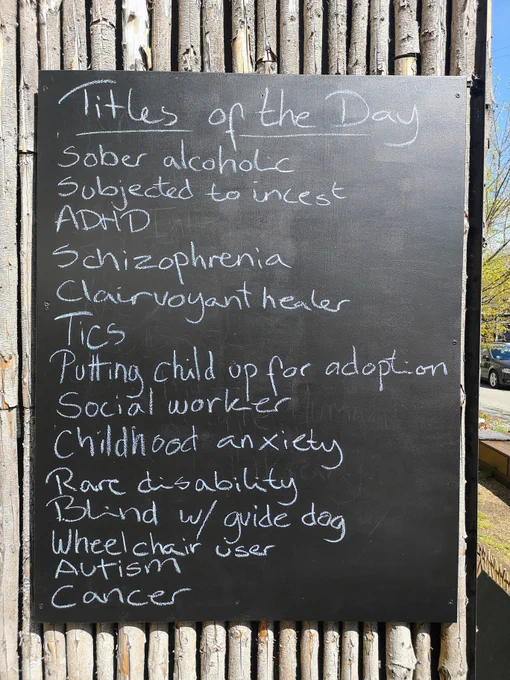 Titles of the Day
Sober alcoholic
Subjected to incest
ADHD
Schizophrenia
Clairvoyant healer
Tics
Putting child up for adoption
Social worker
Childhood anxiety
Rare disability
Blind w/ guide dog
Wheelchair user
Autism
Cancer